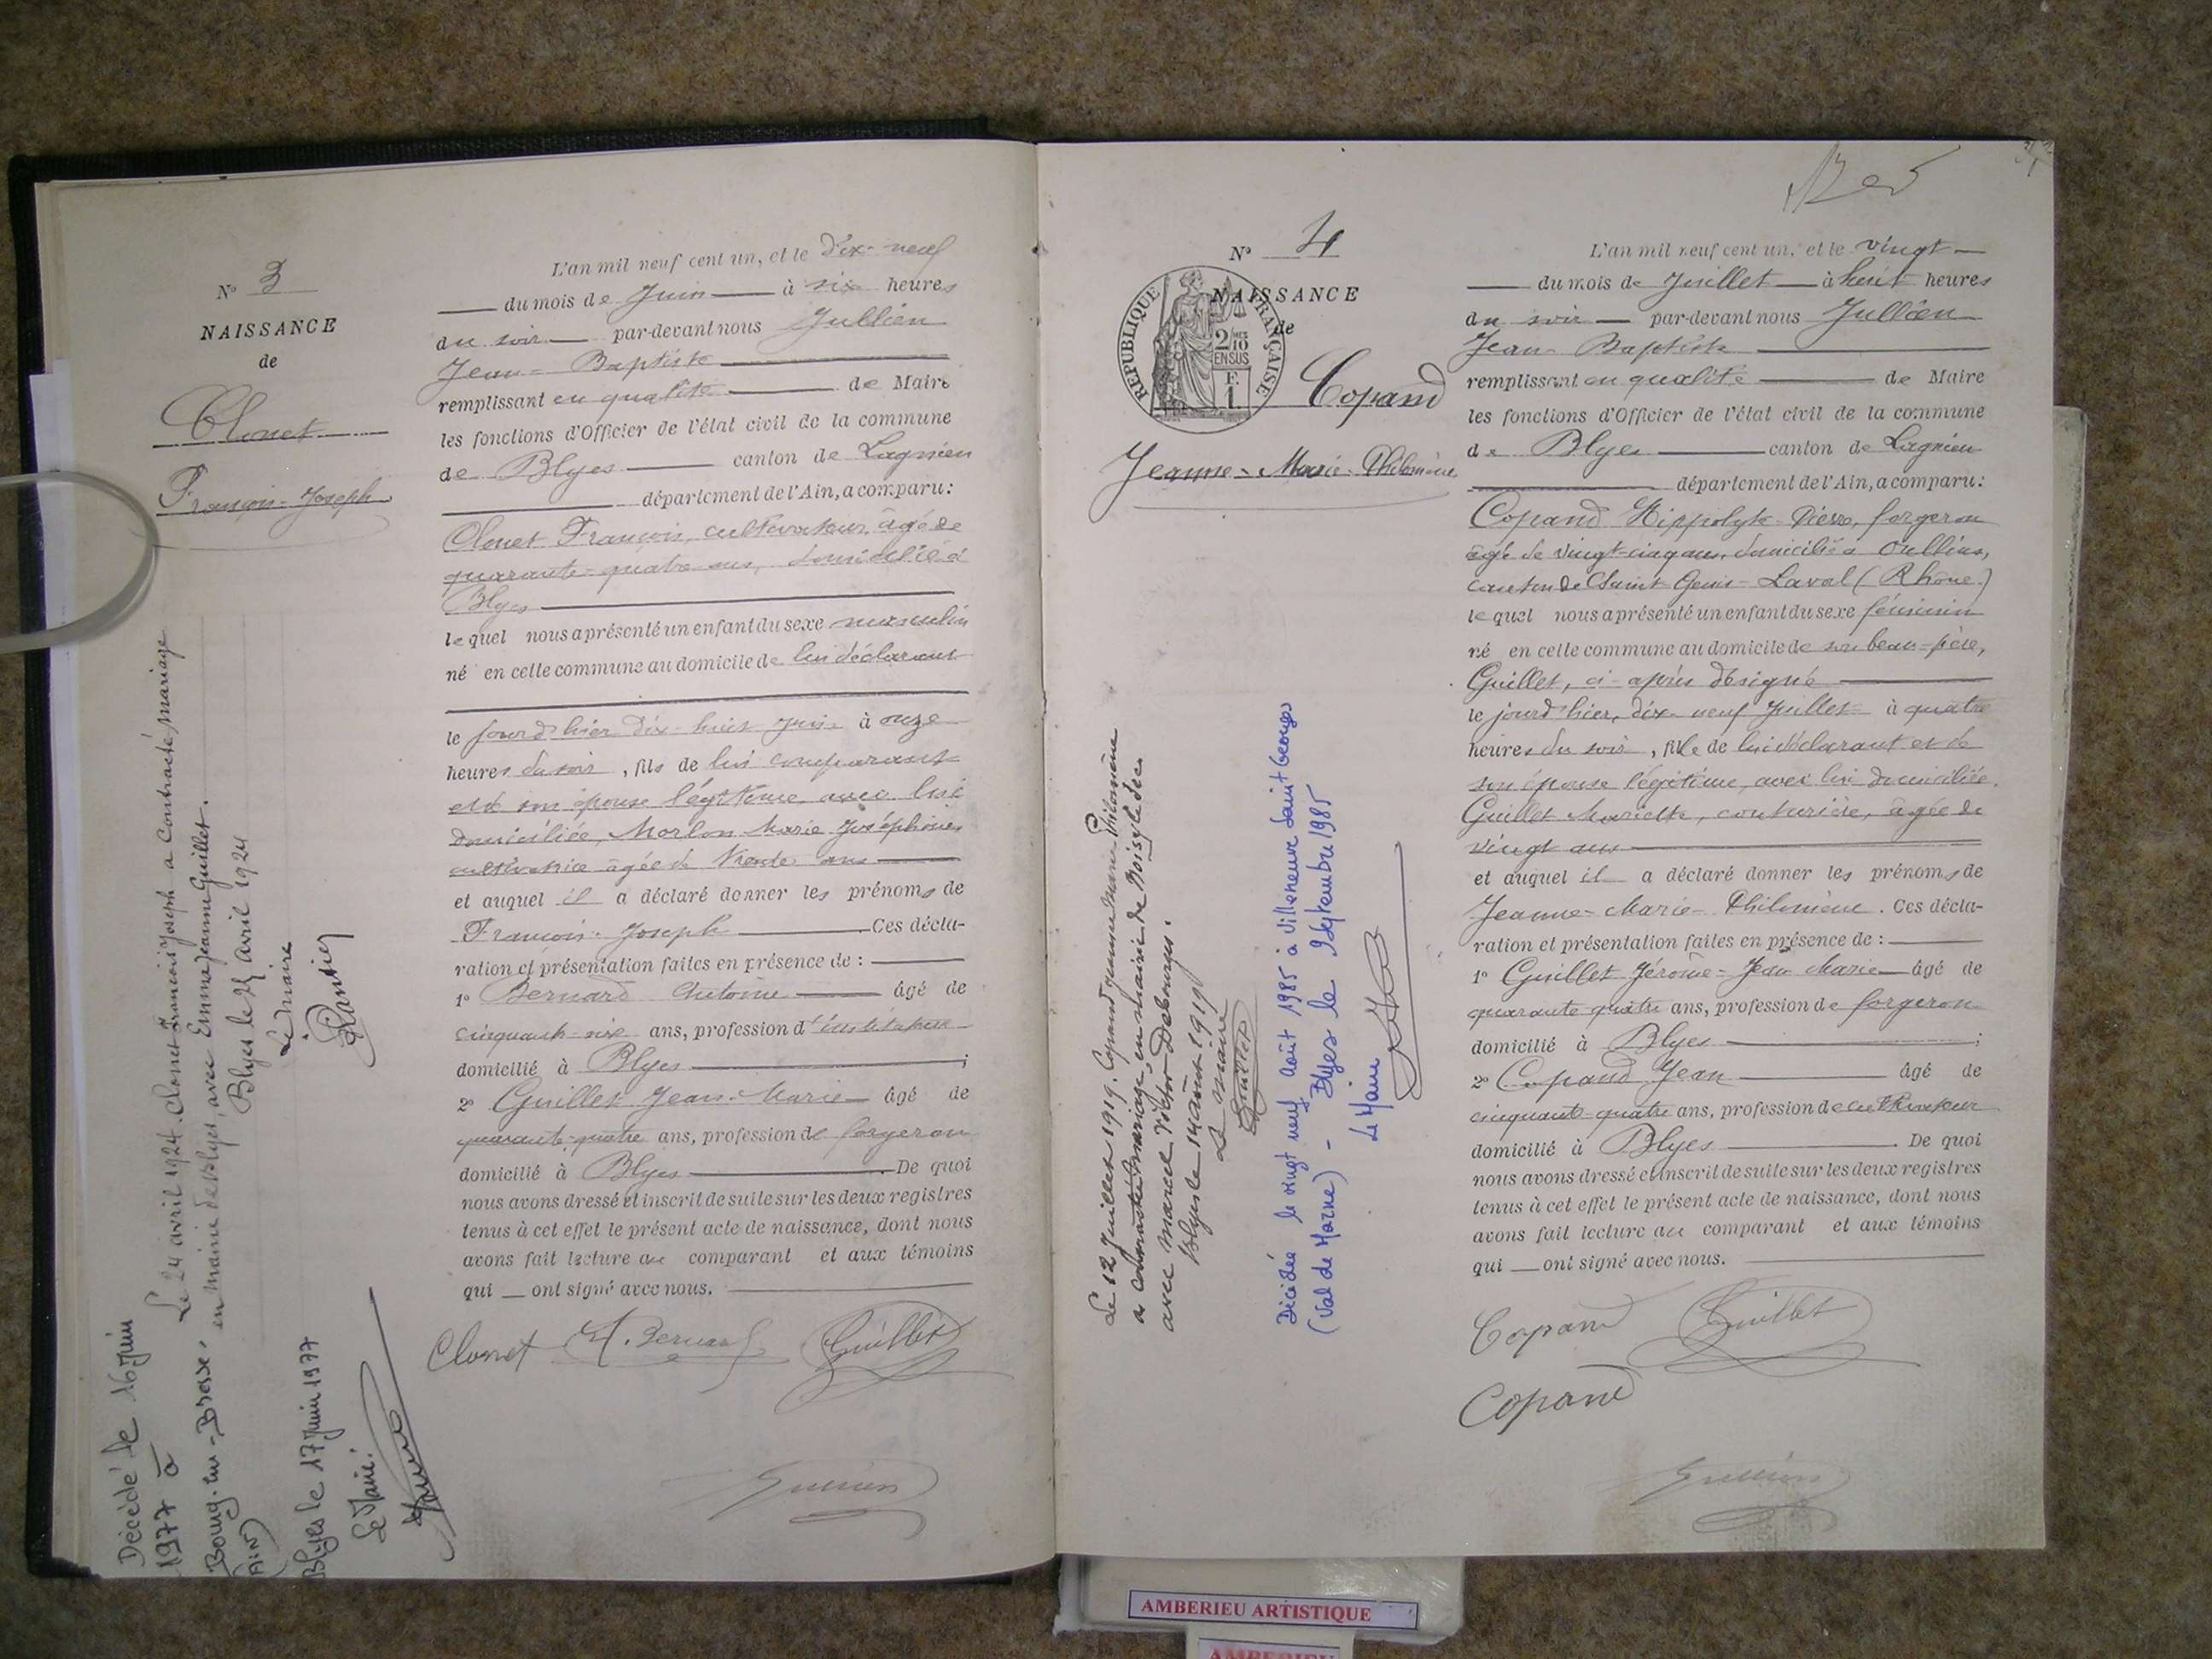 N° 3
NAISSANCE
de
Clonet
François-Joseph
L'an mil neuf cent un, et le dix-neuf
du mois de Juin à six heures
du soir par-devant nous Jullien
Jean-Baptiste
remplissant en qualité de Maire
les fonctions d'Officier de l'état civil de la commune
de Blyes canton de Lagnieu
département de l'Ain, a comparu:
Clonet François, cultivateur, âgé de
quarante-quatre ans, domicilié à
Blyes
lequel nous a présenté un enfant du sexe masculin
né en cette commune au domicile de lui déclarant
le jourd'hier dix-huit Juin à onze
heures du soir, fils de lui comparant
et de son épouse légitime avec lui
domiciliée, Morlon Marie Joséphine,
cultivatrice âgée de trente ans
et auquel il a déclaré donner les prénoms de
François-Joseph Ces décla-
ration et présentation faites en présence de :
1° Bernard Antoine âgé de
cinquante-six ans, profession d'instituteur
domicilié à Blyes ;
2° Guillet Jean-Marie âgé de
quarante-quatre ans, profession de forgeron
domicilié à Blyes De quoi
nous avons dressé et inscrit de suite sur les deux registres
tenus à cet effet le présent acte de naissance, dont nous
avons fait lecture au comparant et aux témoins
qui ont signé avec nous.
Clonet A. Bernard Guillet
Jullien
Le 24 avril 1924. Clonet François Joseph a contracté mariage
en mairie de Blyes, avec Emma Jeanne Guillet.
Blyes le 25 avril 1924
Le Maire
Décédé le 16 juin
1977 à
Bourg-en-Bresse.
(AIN)
Blyes le 17 juin 1977
Le Maire.
N° 4
NAISSANCE
de
RÉPUBLIQUE FRANÇAISE
2/10
EN SUS
F.
1
Copand
Jeanne-Marie-Philomène
L'an mil neuf cent un, et le vingt
du mois de Juillet à huit heures
du soir par-devant nous Jullien
Jean-Baptiste
remplissant en qualité de Maire
les fonctions d'Officier de l'état civil de la commune
de Blyes canton de Lagnieu
département de l'Ain, a comparu:
Copand Hippolyte Pierre, forgeron
âgé de vingt-cinq ans, domicilié à Oullins,
canton de Saint Genis-Laval (Rhône.)
lequel nous a présenté un enfant du sexe féminin
né en cette commune au domicile de son beau-père,
Guillet, ci-après désigné
le jourd'hier, dix-neuf Juillet à quatre
heures du soir, fille de lui déclarant et de
son épouse légitime, avec lui domiciliée,
Guillet Mariette, couturière, âgée de
vingt ans
et auquel il a déclaré donner les prénoms de
Jeanne-Marie-Philomène. Ces décla-
ration et présentation faites en présence de :
1° Guillet Jérôme-Jean Marie âgé de
quarante quatre ans, profession de forgeron
domicilié à Blyes ;
2° Copand Jean âgé de
cinquante-quatre ans, profession de cultivateur
domicilié à Blyes. De quoi
nous avons dressé et inscrit de suite sur les deux registres
tenus à cet effet le présent acte de naissance, dont nous
avons fait lecture au comparant et aux témoins
qui ont signé avec nous.
Copand Guillet
Copand
Jullien
Le 12 Juillet 1919. Copand Jeanne Marie Philomène
a contracté mariage, en mairie de Noisy le Sec
avec Marcel Victor Debourges.
Blyes le 14 août 1919
Le Maire
Guillet
Décédée le vingt neuf août 1985 à Villeneuve Saint Georges
(Val de Marne) - Blyes le septembre 1985
Le Maire
AMBERIEU ARTISTIQUE
AMBERIEU